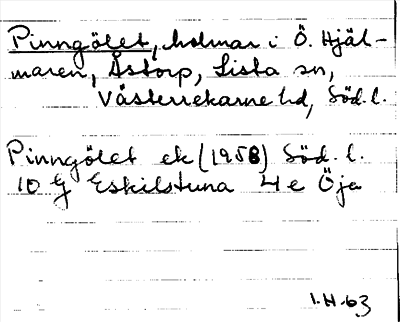 Pinngölet, holmar i Ö. Hjäl-
maren, Åstorp, Lista sn,
Västerrekarne hd, Söd. l.
Pinngölet ek (1958) Söd. l.
10 G Eskilstuna 4 e Öja
1.H.63